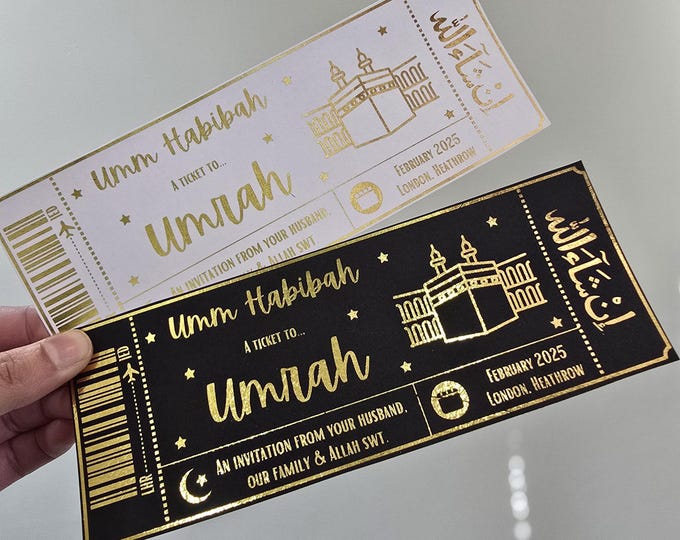 Umm Habibah
A TICKET TO...
Umrah
AN INVITATION FROM YOUR HUSBAND,
& ALLAH SWT
FEBRUARY 2025
LONDON, HEATHROW
إِنْ شَاءَ ٱللَّٰه
JED
Umm Habibah
A TICKET TO...
Umrah
AN INVITATION FROM YOUR HUSBAND,
OUR FAMILY & ALLAH SWT.
FEBRUARY 2025
LONDON, HEATHROW
إِنْ شَاءَ ٱللَّٰه
LHR
JED